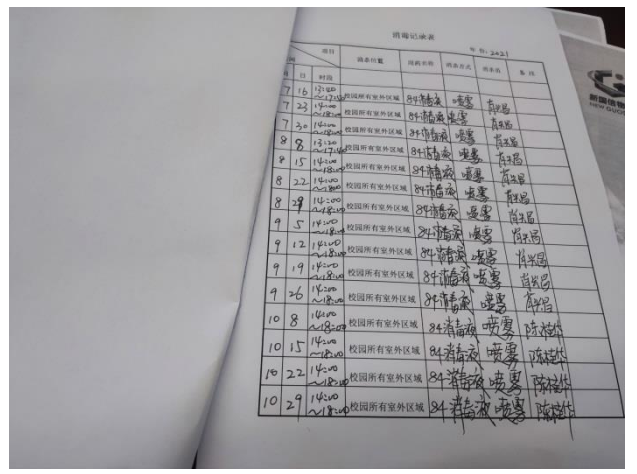 消毒记录表
年份:2021
项目
消杀位置 用药名称 消杀方式 消杀员 备注
月 日 时段
7 16 13:20~17:40 校园所有室外区域 84消毒液 喷雾 肖光昌
7 23 14:00~18:00 校园所有室外区域 84消毒液 喷雾 肖光昌
7 30 14:00~18:00 校园所有室外区域 84消毒液 喷雾 肖光昌
8 8 13:20~17:40 校园所有室外区域 84消毒液 喷雾 肖光昌
8 15 14:00~18:00 校园所有室外区域 84消毒液 喷雾 肖光昌
8 22 14:00~18:00 校园所有室外区域 84消毒液 喷雾 肖光昌
8 29 14:00~18:00 校园所有室外区域 84消毒液 喷雾 肖光昌
9 5 14:00~18:00 校园所有室外区域 84消毒液 喷雾 肖光昌
9 12 14:00~18:00 校园所有室外区域 84消毒液 喷雾 肖光昌
9 19 14:00~18:00 校园所有室外区域 84消毒液 喷雾 肖光昌
9 26 14:00~18:00 校园所有室外区域 84消毒液 喷雾 肖光昌
10 8 14:00~18:00 校园所有室外区域 84消毒液 喷雾 陈桂华
10 15 14:00~18:00 校园所有室外区域 84消毒液 喷雾 陈桂华
10 22 14:00~18:00 校园所有室外区域 84消毒液 喷雾 陈桂华
10 29 14:00~18:00 校园所有室外区域 84消毒液 喷雾 陈桂华
新国信物
NEW GUO